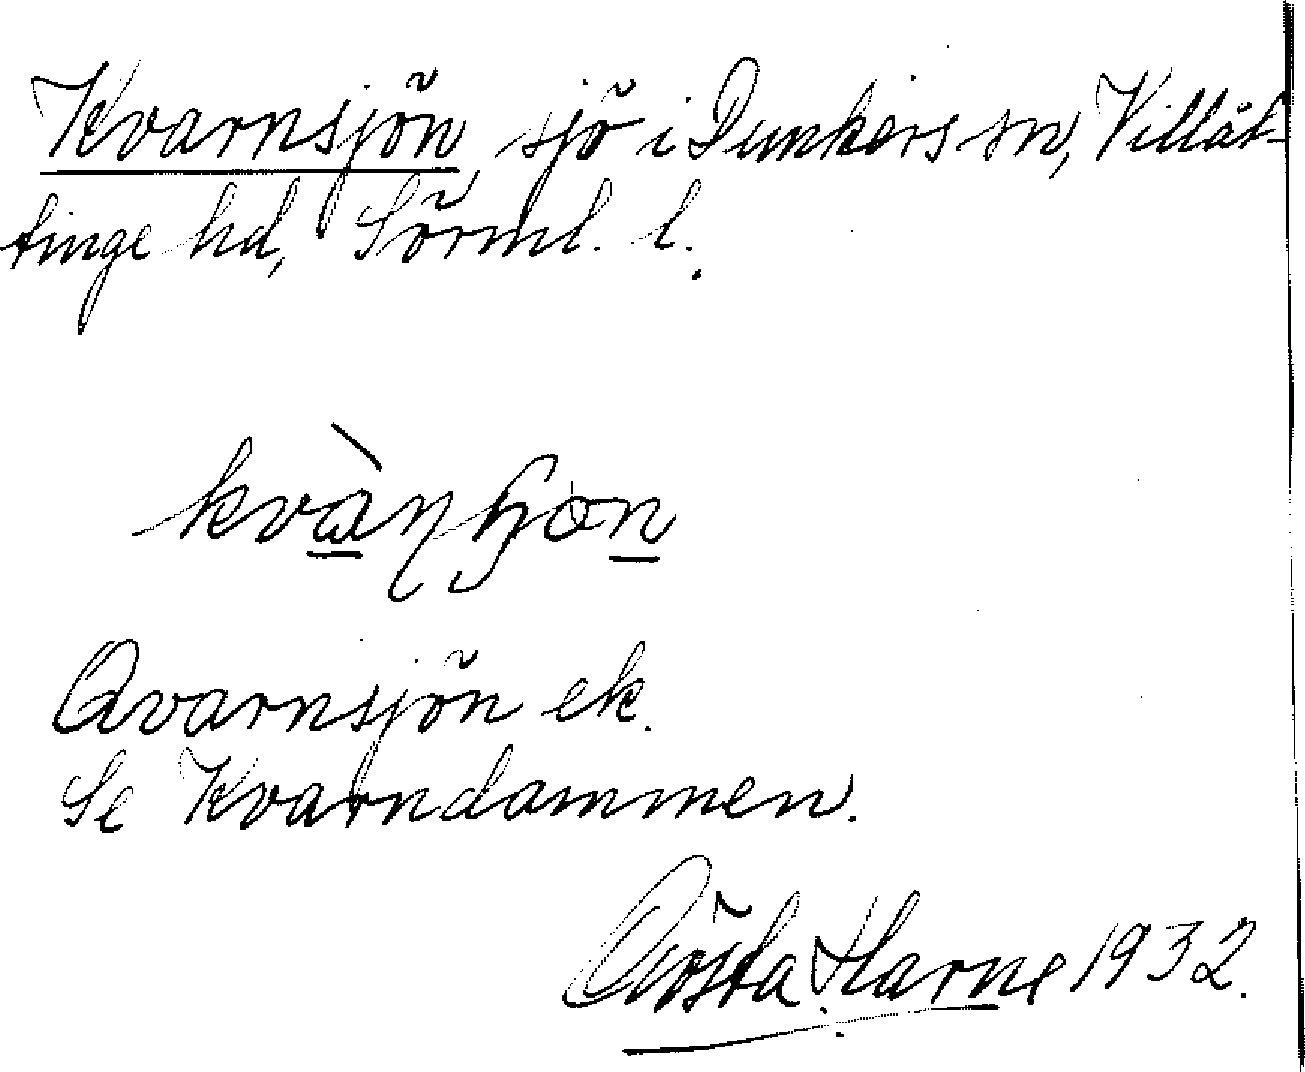 Kvarnsjön, sjö i Dunkers sn, Villåt-
tinge hd, Sörml. l.
Qvarnsjön ek.
Se Kvarndammen.
Gösta Harne 1932.